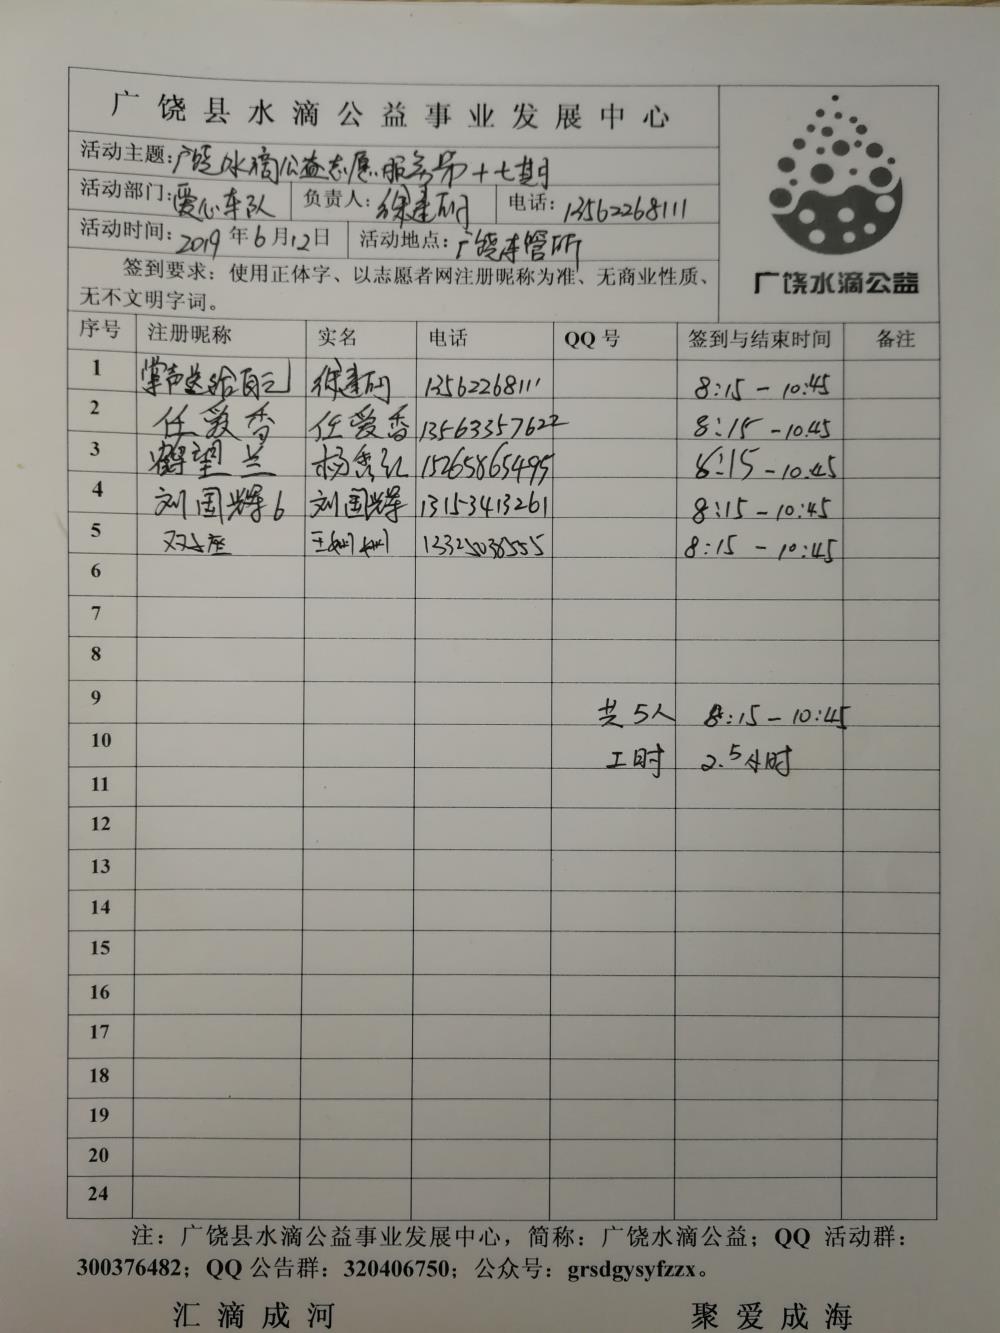 广饶县水滴公益事业发展中心
活动主题:广饶水滴公益志愿服务第十七期
活动部门:爱心车队 负责人:徐建 电话:13562268111
活动时间:2019年6月12日 活动地点:广饶车管所
签到要求:使用正体字、以志愿者网注册昵称为准、无商业性质、
无不文明字词。
广饶水滴公益
序号 注册昵称 实名 电话 QQ号 签到与结束时间 备注
1 掌声送给自己 徐建 13562268111 8:15-10:45
2 任爱香 任爱香 13563357622 8:15-10:45
3 鹤望兰 杨秀红 15265865495 8:15-10:45
4 刘国辉6 刘国辉 13153413261 8:15-10:45
5 双子座 王 8:15-10:45
6
7
8
9 共5人 8:15-10:45
10 工时 2.5小时
11
12
13
14
15
16
17
18
19
20
24
注:广饶县水滴公益事业发展中心,简称:广饶水滴公益;QQ 活动群:
300376482;QQ公告群:320406750;公众号:grsdgysyfzzx。
汇滴成河 聚爱成海